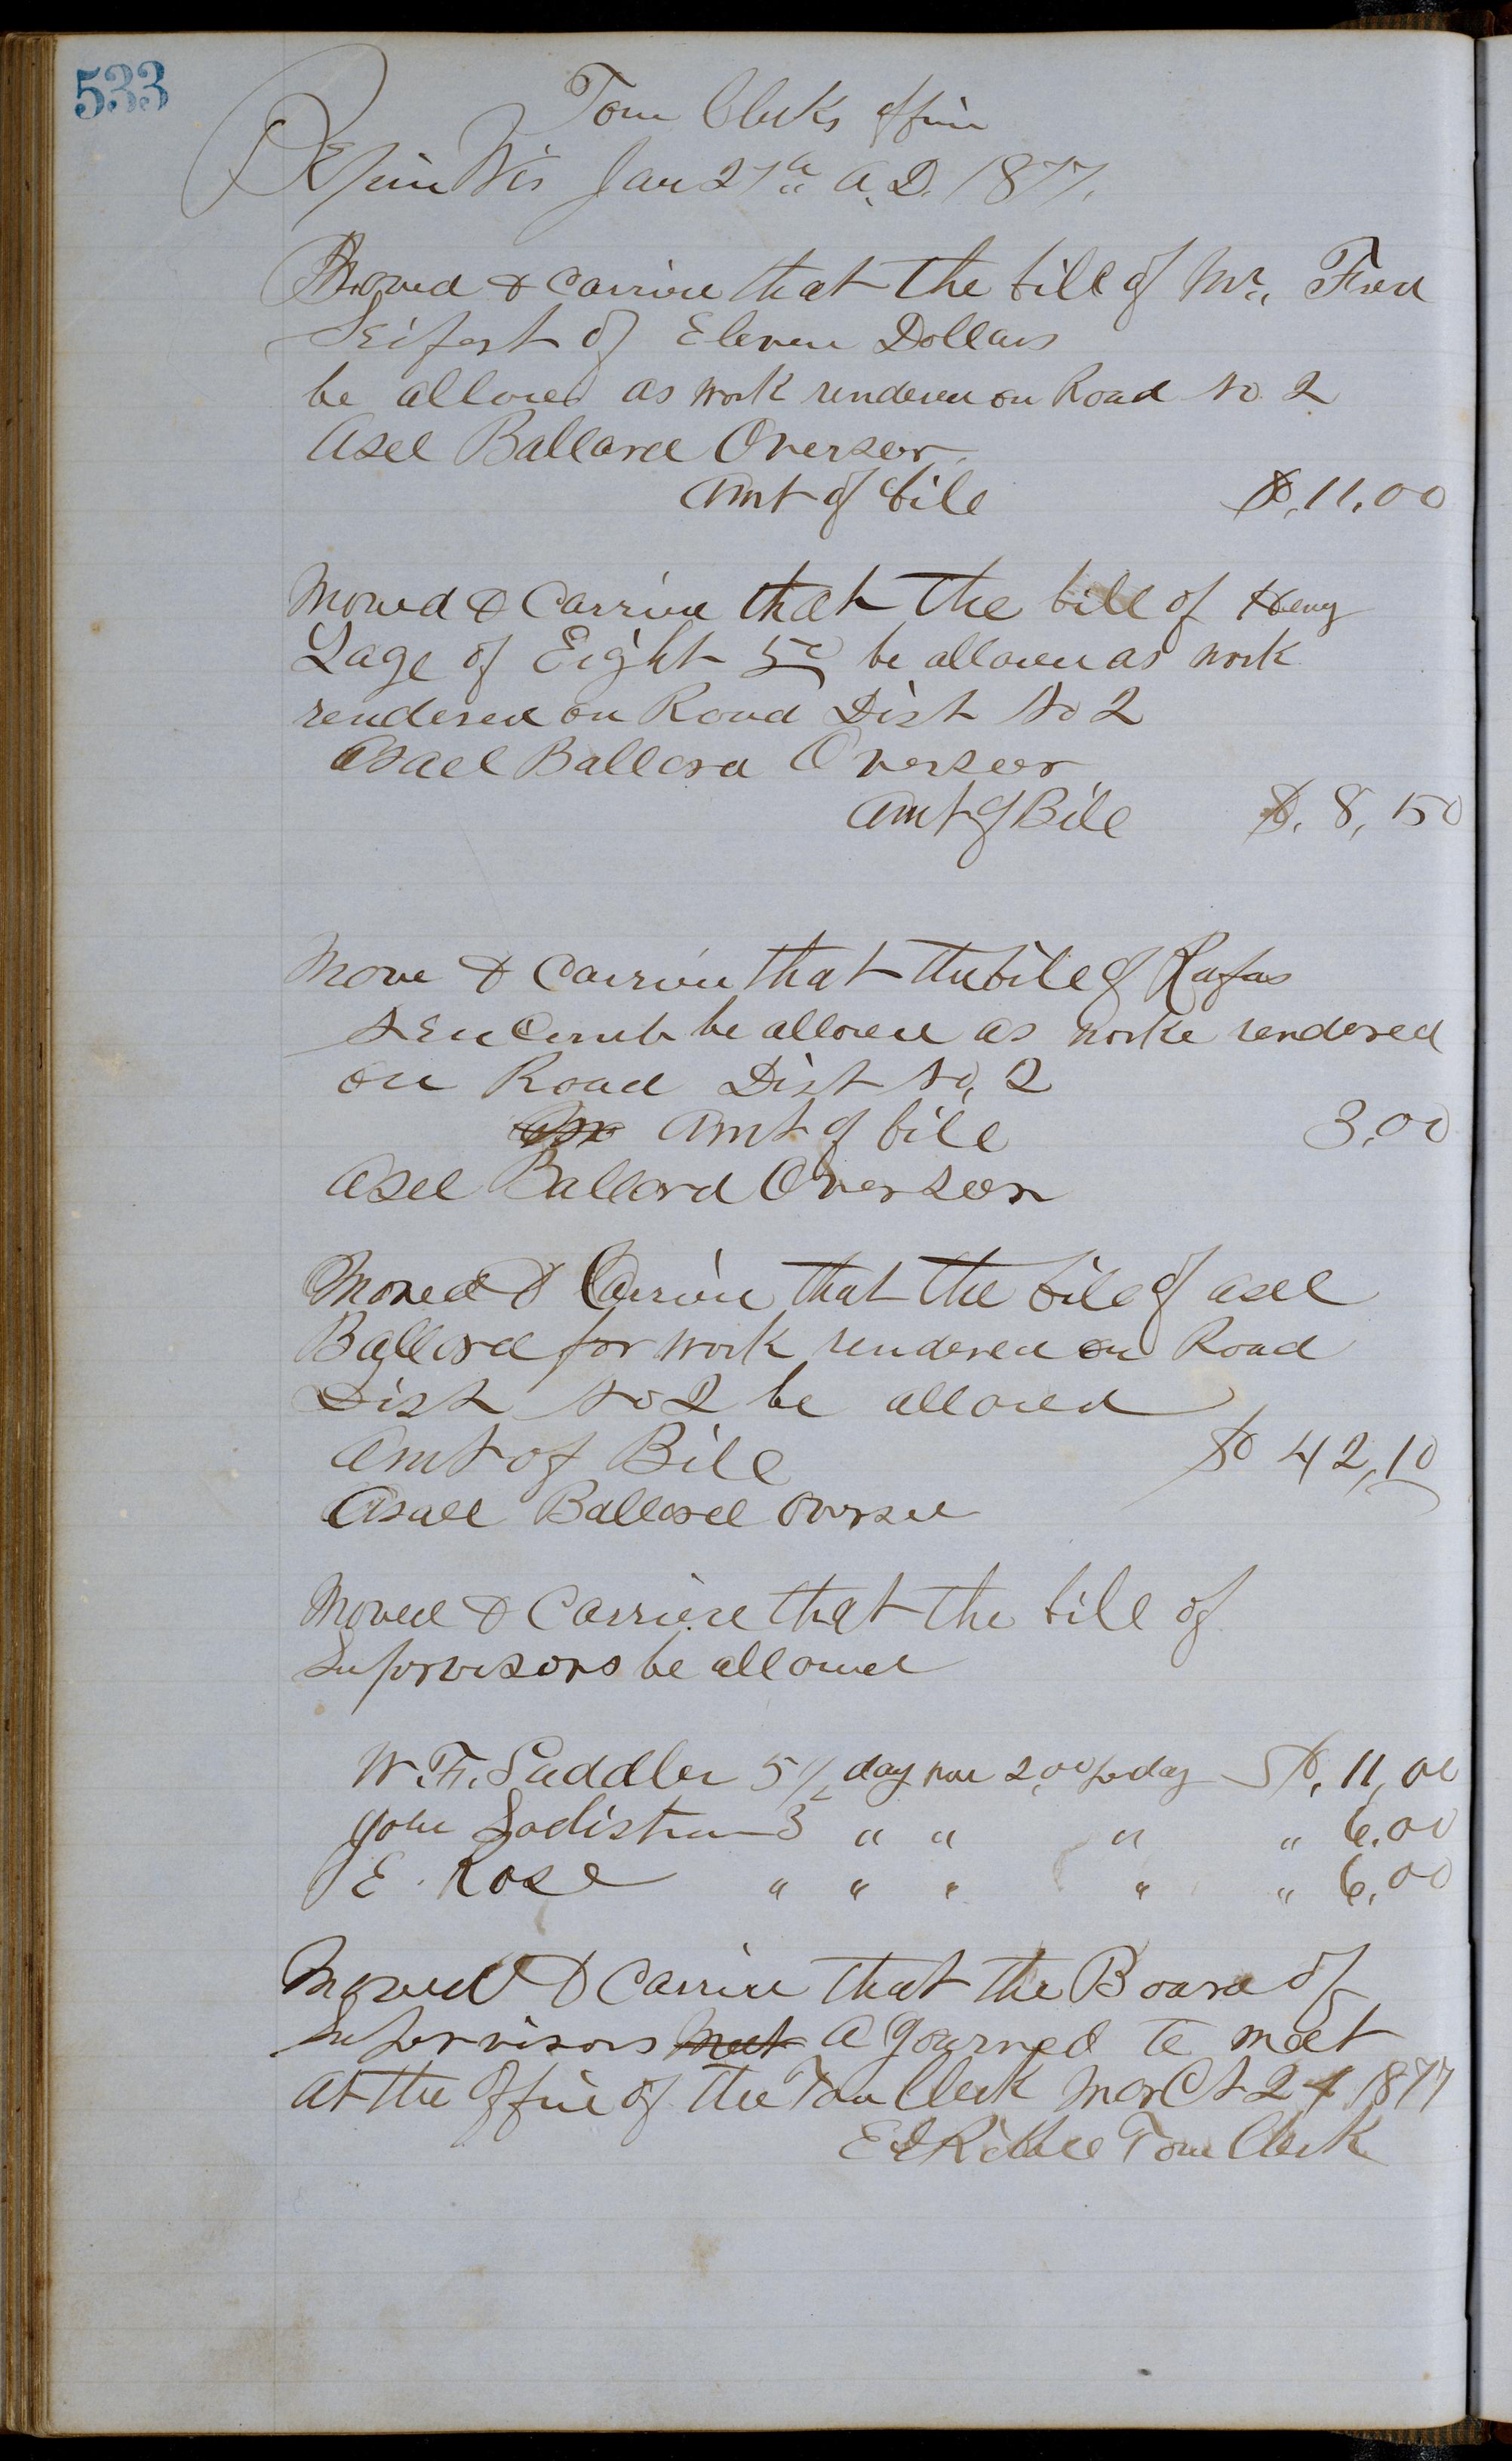 533
Town Clerks office
Pepin Wis Jan 27th A.D. 1877.
Moved & Carried that the bill of Mr. Fred
Seifert of Eleven Dollars
be allowed as work rendered on Road No. 2
Asel Ballard Overseer
Amt of bill $. 11.00
Moved & Carried that the bill of Henry
Lage of Eight 50 be allowed as work
rendered on Road Dist No 2
Asael Ballard Overseer
Amt of Bill $. 8, 50
Move & Carried that the bill of Rufus
Newcomb be allowed as worke rendered
on Road Dist No, 2
Amt of bill 3.00
Asel Ballard Overseer
Moved & Carried that the bill of Asel
Ballard for work rendered on Road
Dist No 2 be allowed
Amt of Bill $ 42,10
Asael Ballard Oversee
Moved & Carried that the bill of
Supervisors be allowed
W. F. Saddler 5 1/2 day 2,00 per day $. 11,00
John 3 " " " " 6.00
E. Rose " " " " " 6,00
Moved & Carried that the Board of
Supervisors meet Agourned to meet
at the Office of the Town Clerk March 24 1877
Town Clerk